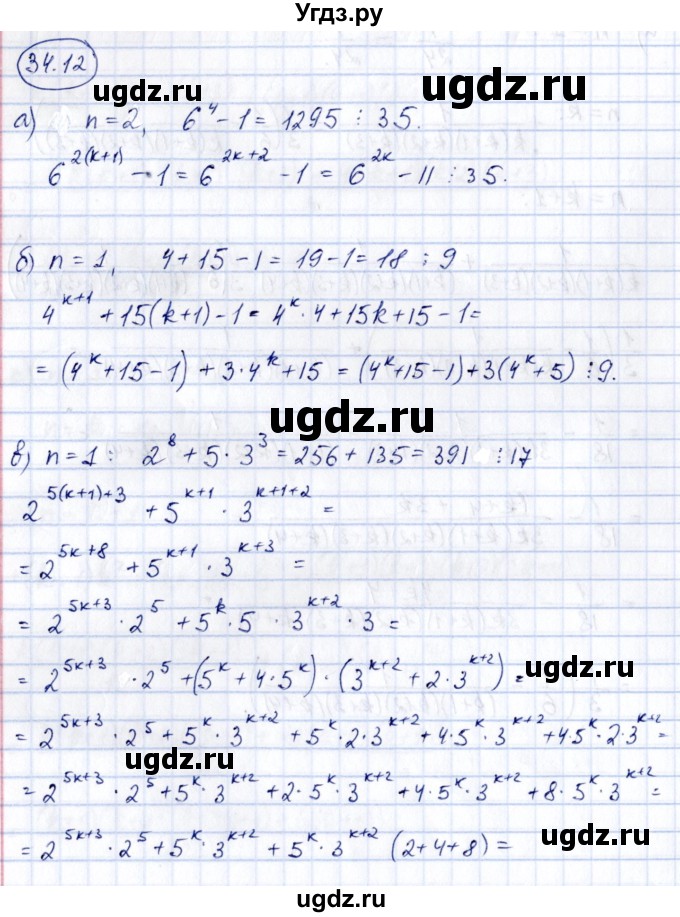 Угдз.ру
34.12
ugdz.ru ugdz.ru
а) n=2, 6^4 - 1 = 1295 ⋮ 35.
6^{2(k+1)} - 1 = 6^{2k+2} - 1 = 6^{2k} - 11 ⋮ 35.
ugdz.ru
б) n=1, 4+15-1=19-1=18 ⋮ 9
4^{k+1} + 15(k+1) - 1 = 4^k · 4 + 15k + 15 - 1 =
= (4^k + 15 - 1) + 3·4^k + 15 = (4^k + 15 - 1) + 3(4^k + 5) ⋮ 9.
ugdz.ru
в) n=1: 2^8 + 5·3^3 = 256 + 135 = 391 ⋮ 17
2^{5(k+1)+3} + 5^{k+1} · 3^{k+1+2} =
ugdz.ru
= 2^{5k+8} + 5^{k+1} · 3^{k+3} =
= 2^{5k+3} · 2^5 + 5^k · 5 · 3^{k+2} · 3 =
ugdz.ru
= 2^{5k+3} · 2^5 + (5^k + 4·5^k) · (3^{k+2} + 2·3^{k+2}) =
= 2^{5k+3} · 2^5 + 5^k · 3^{k+2} + 5^k · 2 · 3^{k+2} + 4·5^k · 3^{k+2} + 4·5^k · 2·3^{k+2} =
ugdz.ru
= 2^{5k+3} · 2^5 + 5^k · 3^{k+2} + 2·5^k · 3^{k+2} + 4·5^k · 3^{k+2} + 8·5^k · 3^{k+2} =
= 2^{5k+3} · 2^5 + 5^k · 3^{k+2} + 5^k · 3^{k+2} (2+4+8) =
ugdz.ru
ugdz.ru